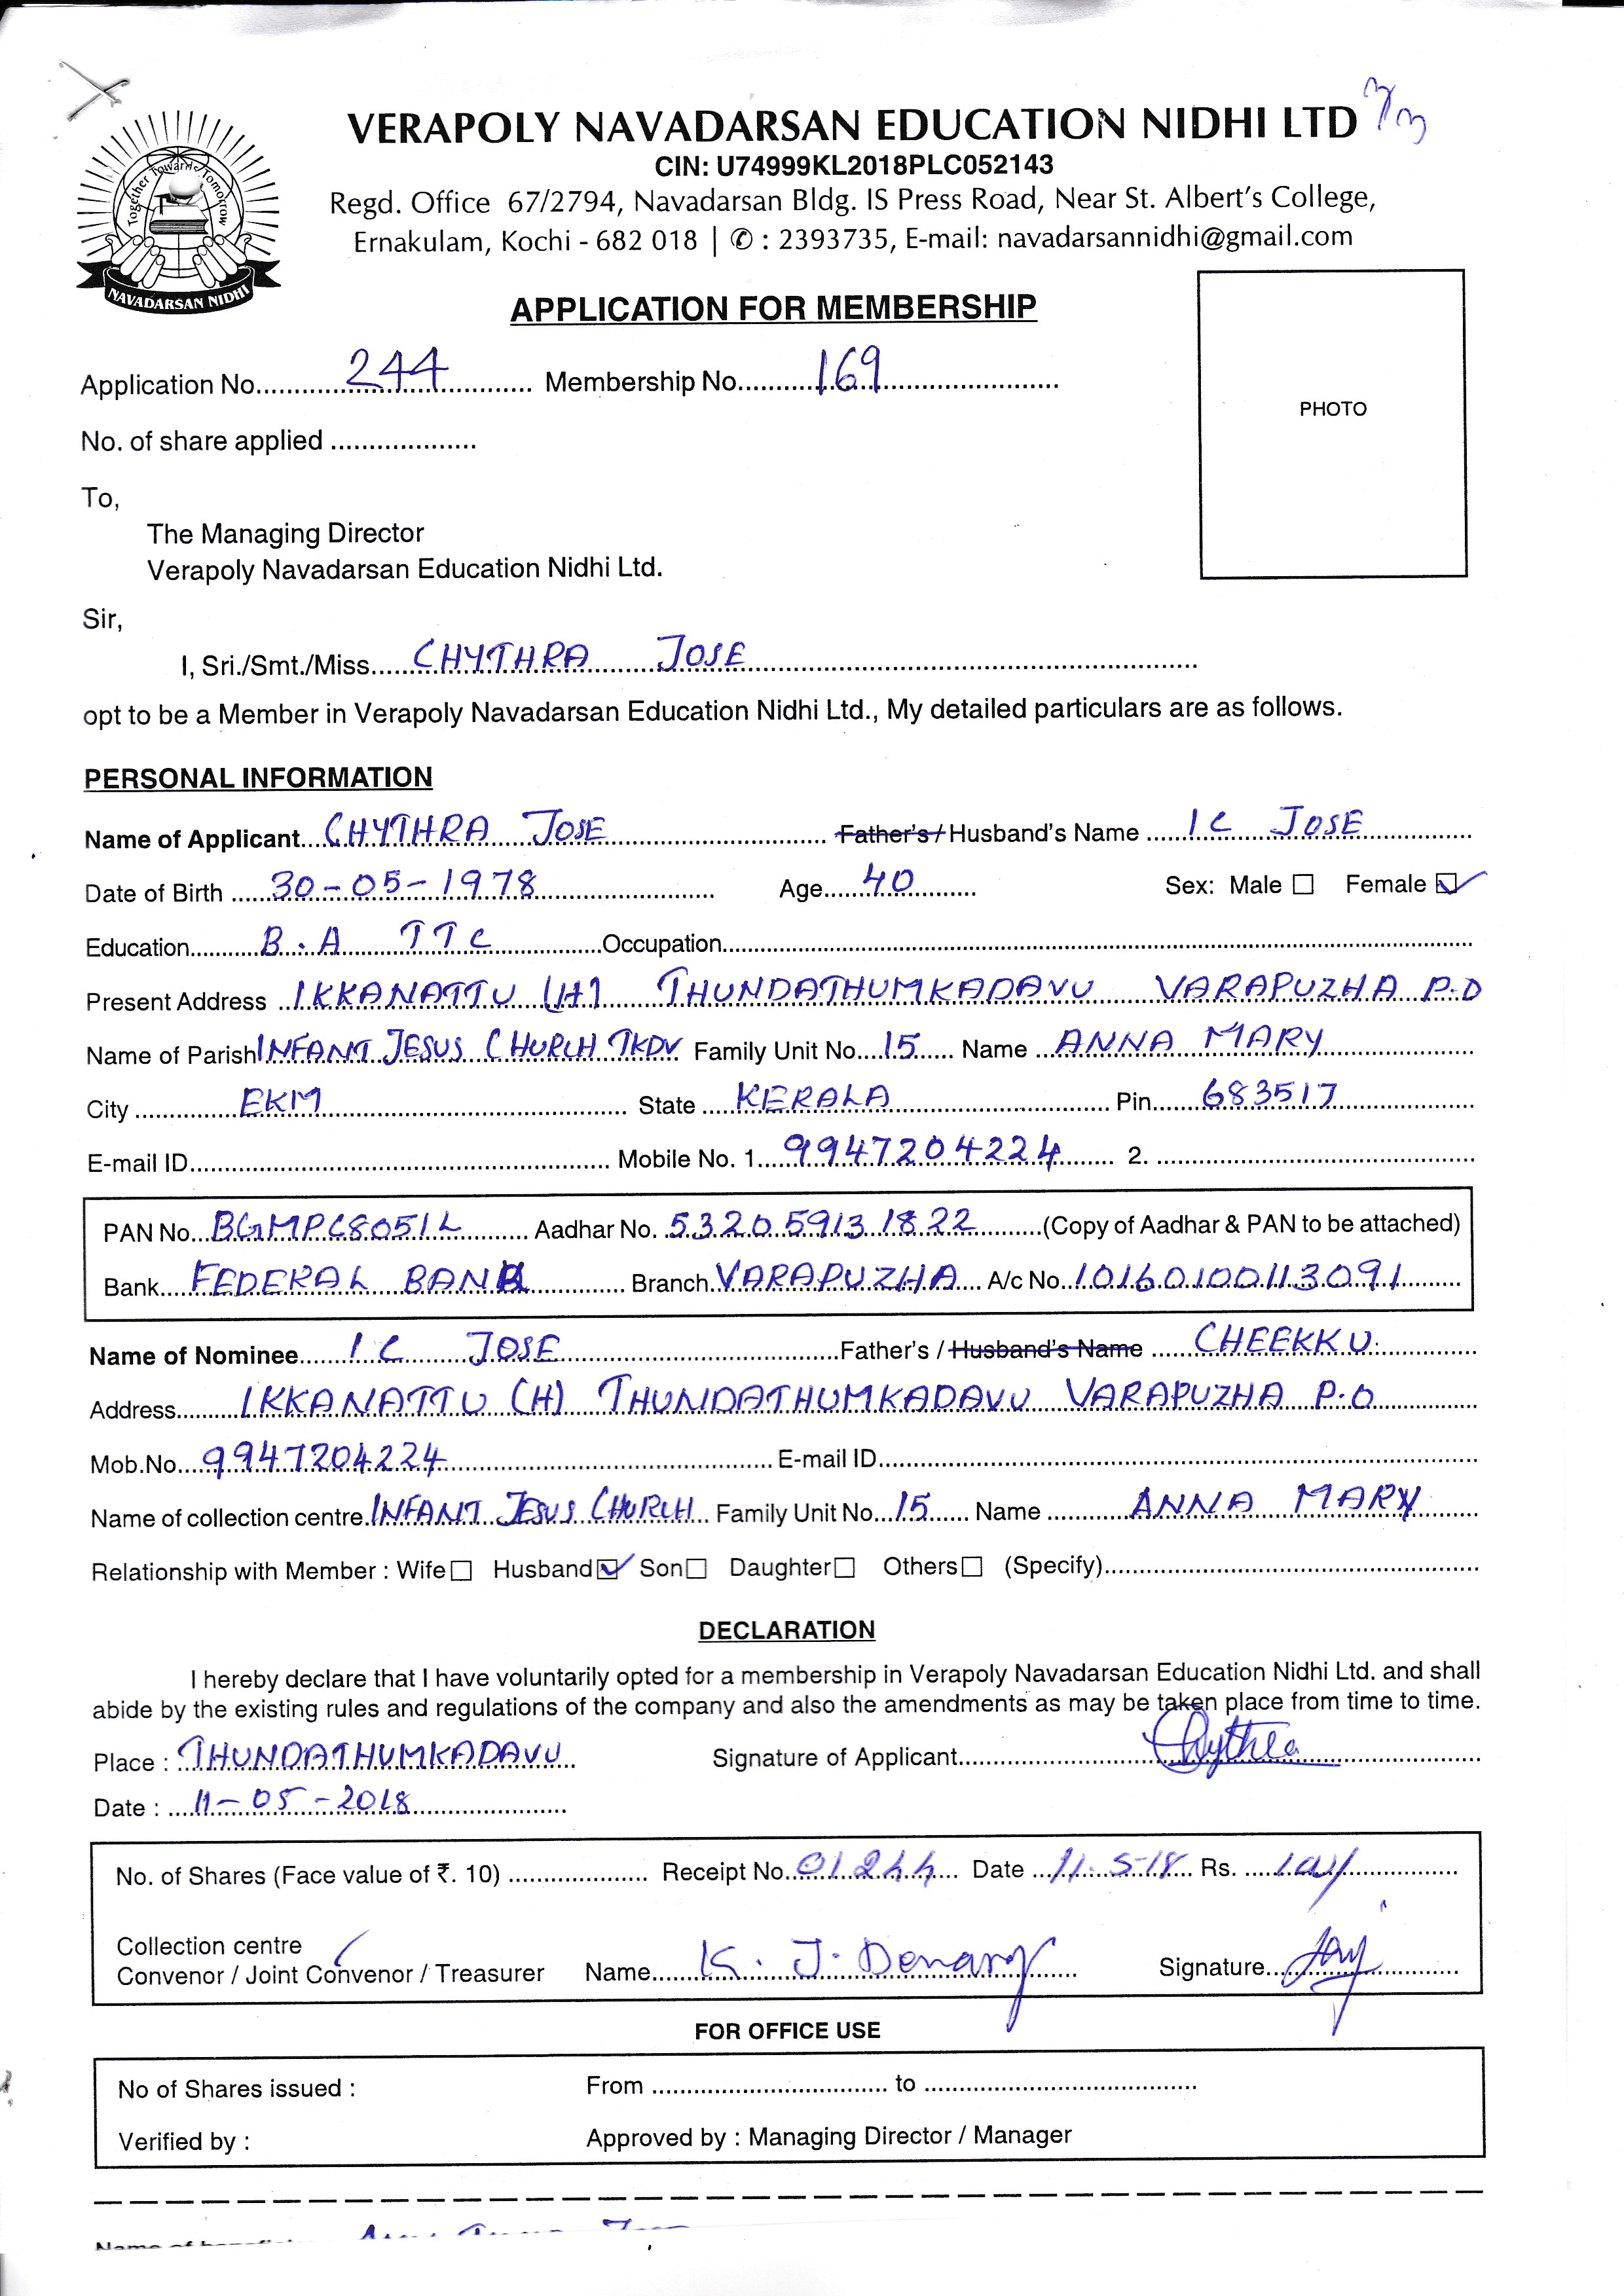 VERAPOLY NAVADARSAN EDUCATION NIDHI LTD
CIN: U74999KL2018PLC052143
Regd. Office 67/2794, Navadarsan Bldg. IS Press Road, Near St. Albert's College,
Ernakulam, Kochi - 682 018 | ✆ : 2393735, E-mail: navadarsannidhi@gmail.com
Together Towards Tomorrow
NAVADARSAN NIDHI
APPLICATION FOR MEMBERSHIP
Application No. 244 Membership No. 169
PHOTO
No. of share applied
To,
The Managing Director
Verapoly Navadarsan Education Nidhi Ltd.
Sir,
I, Sri./Smt./Miss. CHYTHRA JOSE
opt to be a Member in Verapoly Navadarsan Education Nidhi Ltd., My detailed particulars are as follows.
PERSONAL INFORMATION
Name of Applicant CHYTHRA JOSE Father's / Husband's Name I C JOSE
Date of Birth 30-05-1978 Age 40 Sex: Male ☐ Female ☑
Education B.A TTC Occupation
Present Address IKKANATTU (H) THUNDATHUMKADAVU VARAPUZHA P.O
Name of Parish INFANT JESUS CHURCH TKDV Family Unit No. 15 Name ANNA MARY
City EKM State KERALA Pin 683517
E-mail ID Mobile No. 1. 9947204224 2.
PAN No. BGMPC8051L Aadhar No. 5320 5913 1822 (Copy of Aadhar & PAN to be attached)
Bank FEDERAL BANK Branch VARAPUZHA A/c No. 10160100113091
Name of Nominee I C JOSE Father's / Husband's Name CHEEKKU
Address IKKANATTU (H) THUNDATHUMKADAVU VARAPUZHA P.O
Mob.No. 9947204224 E-mail ID
Name of collection centre INFANT JESUS CHURCH Family Unit No. 15 Name ANNA MARY
Relationship with Member : Wife ☐ Husband ☑ Son ☐ Daughter ☐ Others ☐ (Specify)
DECLARATION
I hereby declare that I have voluntarily opted for a membership in Verapoly Navadarsan Education Nidhi Ltd. and shall
abide by the existing rules and regulations of the company and also the amendments as may be taken place from time to time.
Place : THUNDATHUMKADAVU Signature of Applicant Chythra
Date : 11-05-2018
No. of Shares (Face value of ₹. 10) Receipt No. 01244 Date 11.5-18 Rs.
Collection centre
Convenor / Joint Convenor / Treasurer Name K. J. Signature
FOR OFFICE USE
No of Shares issued : From to
Verified by : Approved by : Managing Director / Manager